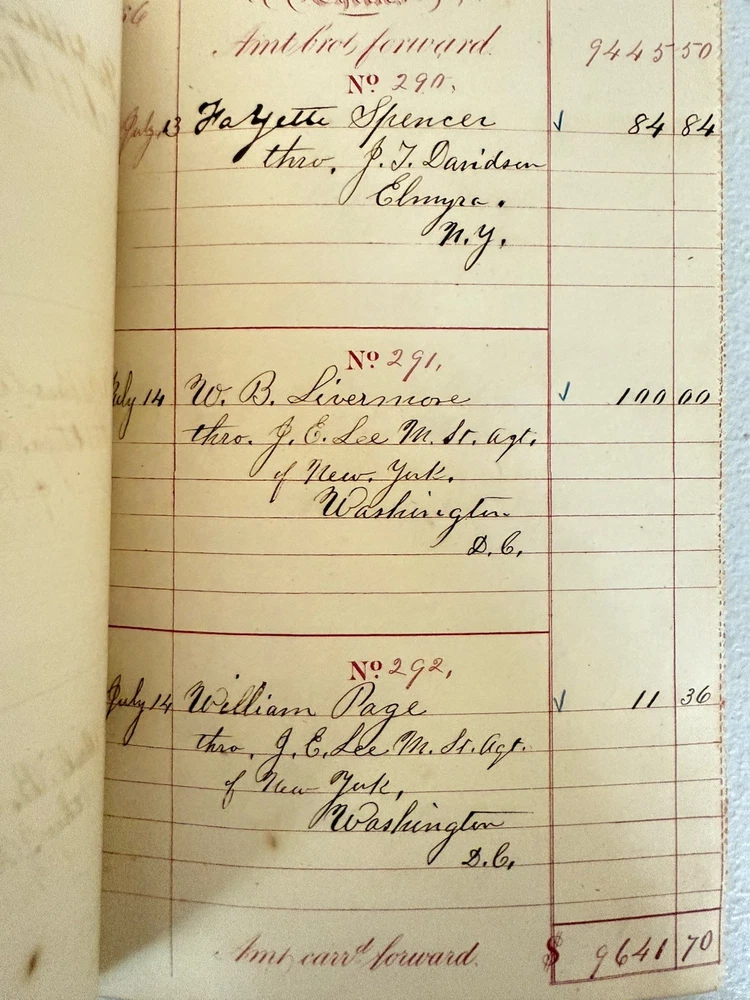 66
Amt brot forward. 9445 50
No 290.
July 13 Fayette Spencer √ 84 84
thro. J. T. Davidson
Elmyra.
N.Y.
No 291.
July 14 W. B. Livermore √ 100 00
thro. J. E. Lee M. St. Agt.
of New. York.
Washington
D.C.
No 292.
July 14 William Page √ 11 36
thro. J. E. Lee M. St. Agt.
of New York,
Washington
D.C.
Amt, carrd forward. $ 9641 70